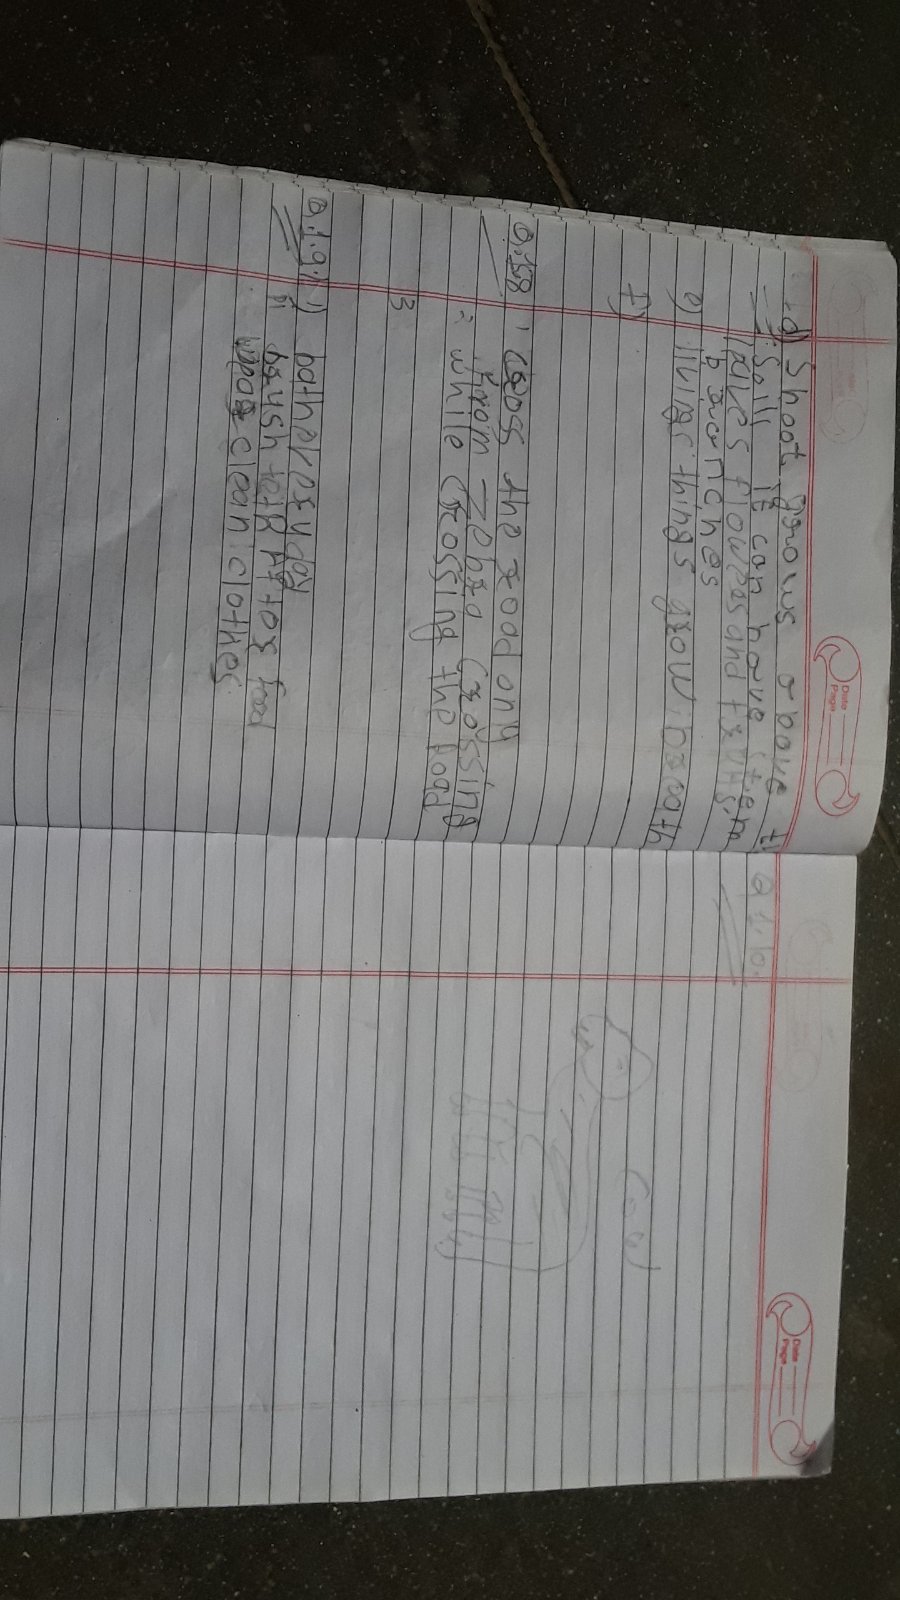 Date
Page
d) Shoot grows above t
Soil. IE can have stem
leaves flowers and fruits,
branches
e) living things grow breath
f)
Q.58 1 Cross the road only
from zebra Crossing
2 while Crossing the Road
3
Q.1.9.1) bath every day
brush teeth after food
wear clean clothes
Date
Page
Q 1.10.
Cow